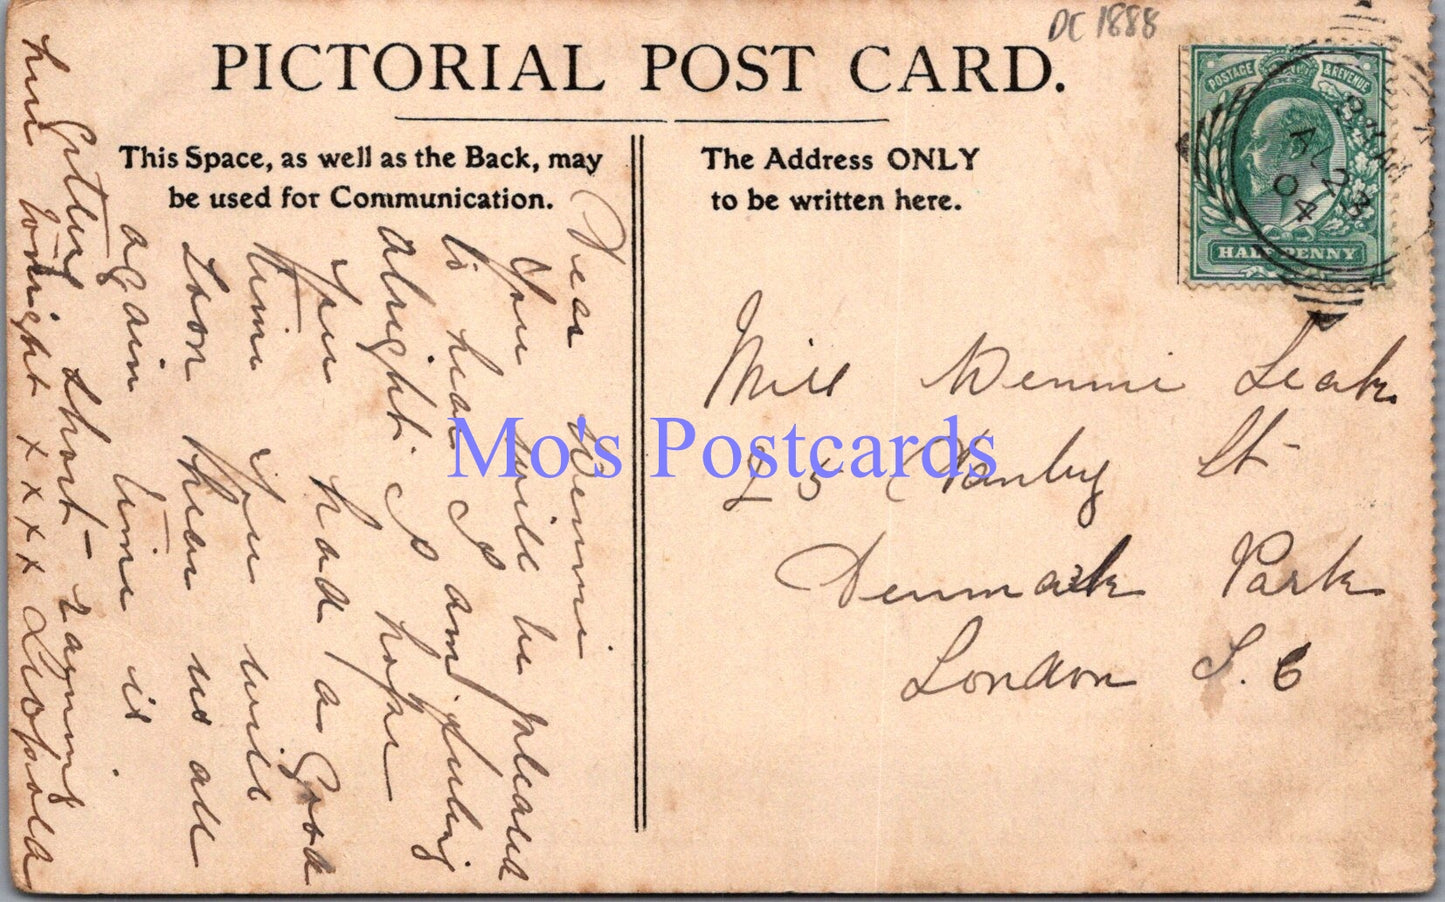 DC 1888
PICTORIAL POST CARD.
This Space, as well as the Back, may
be used for Communication.
The Address ONLY
to be written here.
POSTAGE & REVENUE
HALFPENNY
23
04
Dear Wennie
You will be pleased
to hear I am feeling
alright. I hope
you had a good
time you will
soon hear us all
again time is
getting short - raining
here tonight x x x x Leopold
Miss Wennie Leak
25 Stanley St
Denmark Park
London S.E
Mo's Postcards